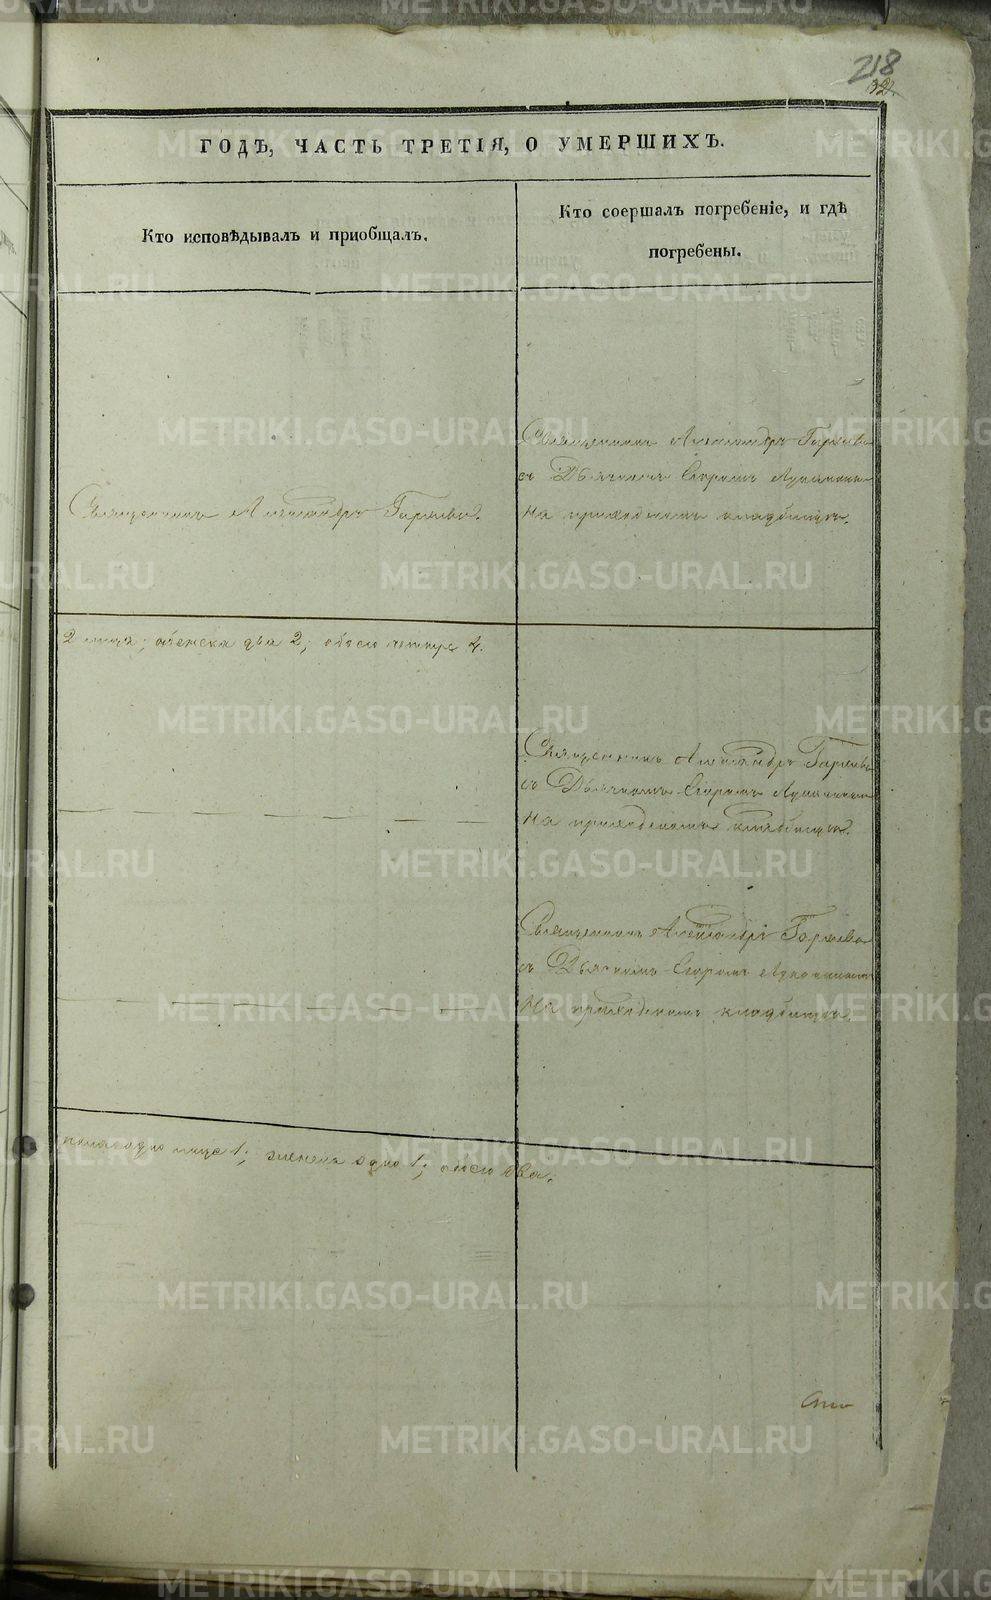 218
32
ГОДЪ, ЧАСТЬ ТРЕТІЯ, О УМЕРШИХЪ.
Кто исповѣдывалъ и приобщалъ.
Кто соершалъ погребеніе, и гдѣ
погребены.
Священникъ Александръ
съ Дьячкомъ Егоромъ
на приходскомъ кладбищѣ.
Священникъ Александръ
2 лица; женска два 2; обоего четыре 4.
Священникъ Александръ
съ Дьячкомъ Егоромъ
на приходскомъ кладбищѣ.
Священникъ Александръ
съ Дьячкомъ Егоромъ
на приходскомъ кладбищѣ.
пола одно лице 1; женска одно 1; обоего два.
METRIKI.GASO-URAL.RU